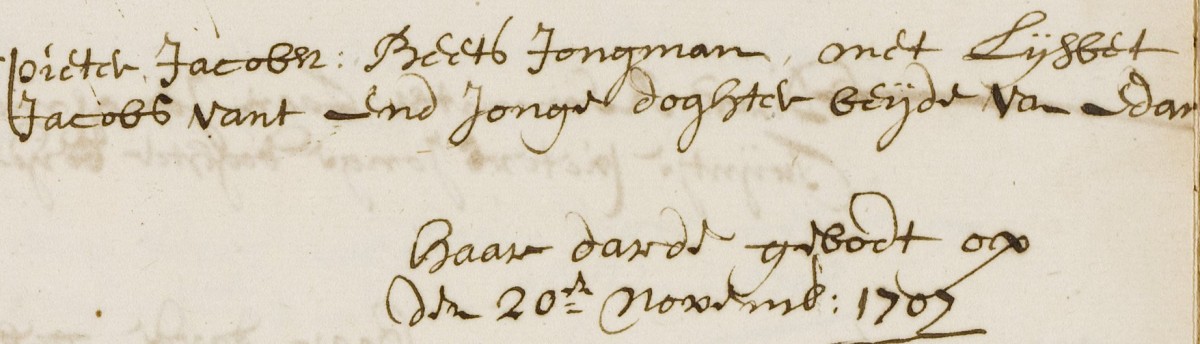 Pieter Jacobsz: Beets Jongman, met Lijsbet
Jacobs vant End Jonge doghter beijde van Edam
Haar darde gebodt op
den 20en Novemb: 1707